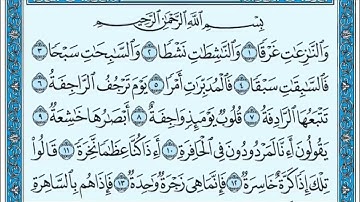 بِسْمِ اللَّهِ الرَّحْمَٰنِ الرَّحِيمِ
وَالنَّازِعَاتِ غَرْقًا ١ وَالنَّاشِطَاتِ نَشْطًا ٢ وَالسَّابِحَاتِ سَبْحًا ٣
فَالسَّابِقَاتِ سَبْقًا ٤ فَالْمُدَبِّرَاتِ أَمْرًا ٥ يَوْمَ تَرْجُفُ الرَّاجِفَةُ ٦
تَتْبَعُهَا الرَّادِفَةُ ٧ قُلُوبٌ يَوْمَئِذٍ وَاجِفَةٌ ٨ أَبْصَارُهَا خَاشِعَةٌ ٩
يَقُولُونَ أَءِنَّا لَمَرْدُودُونَ فِي الْحَافِرَةِ ١٠ أَءِذَا كُنَّا عِظَامًا نَّخِرَةً ١١ قَالُوا
تِلْكَ إِذًا كَرَّةٌ خَاسِرَةٌ ١٢ فَإِنَّمَا هِيَ زَجْرَةٌ وَاحِدَةٌ ١٣ فَإِذَا هُم بِالسَّاهِرَةِ